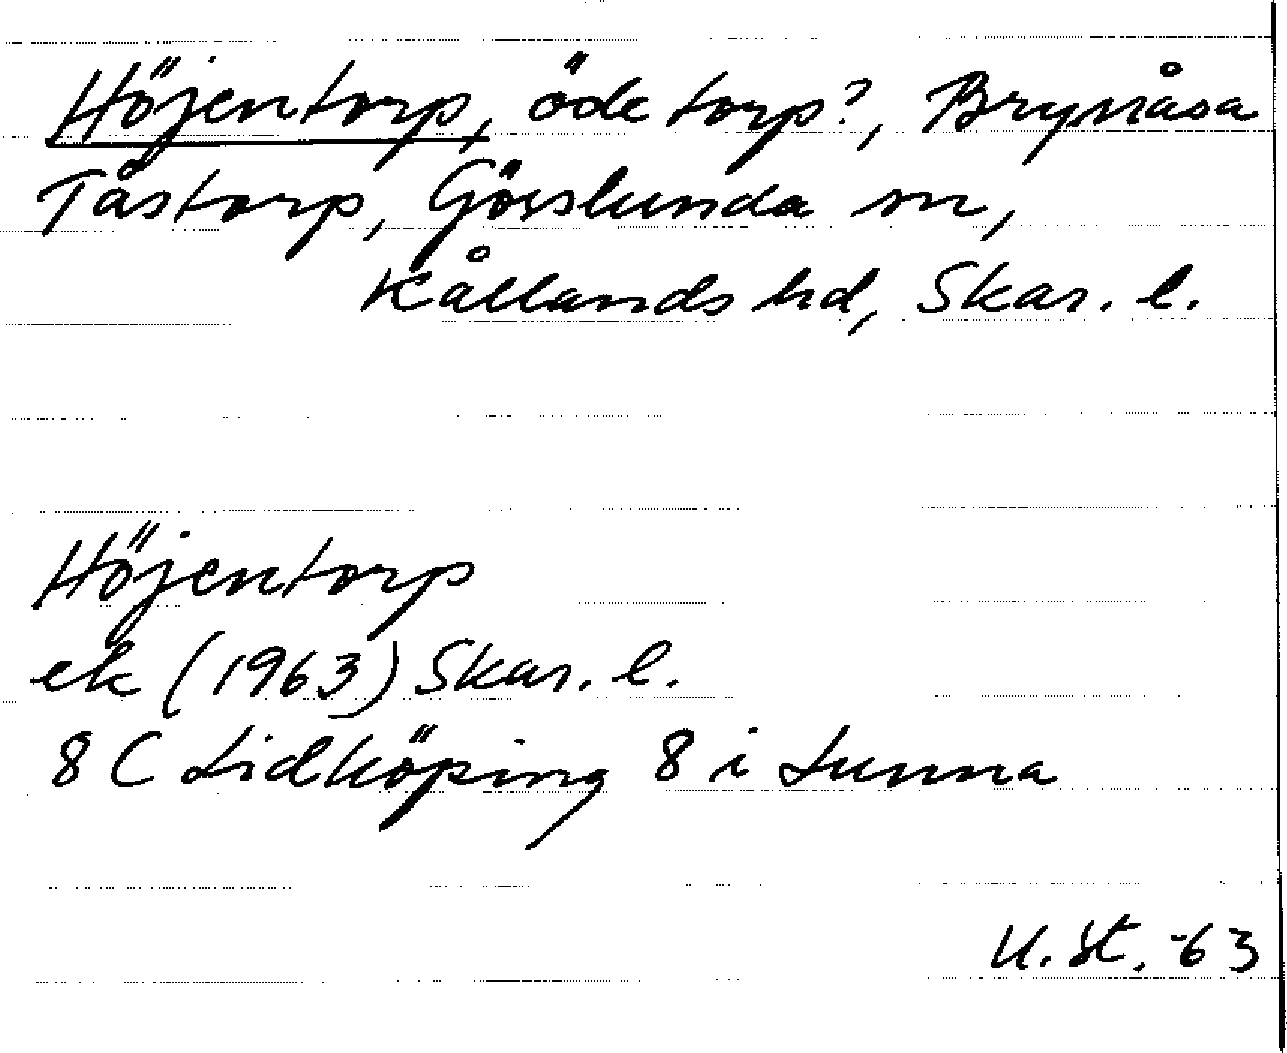 Höjentorp, öde torp?, Brynåsa
Tåstorp, Gösslunda sn,
Kållands hd, Skar. l.
Höjentorp
ek (1963) Skar. l.
8 C Lidköping 8 i Lunna
U. St. -63